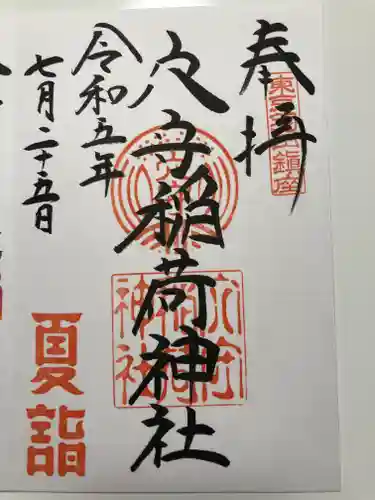 奉拝
東京羽田鎮座
穴守稲荷神社
穴守
稲荷
神社
令和五年
七月二十五日
夏詣